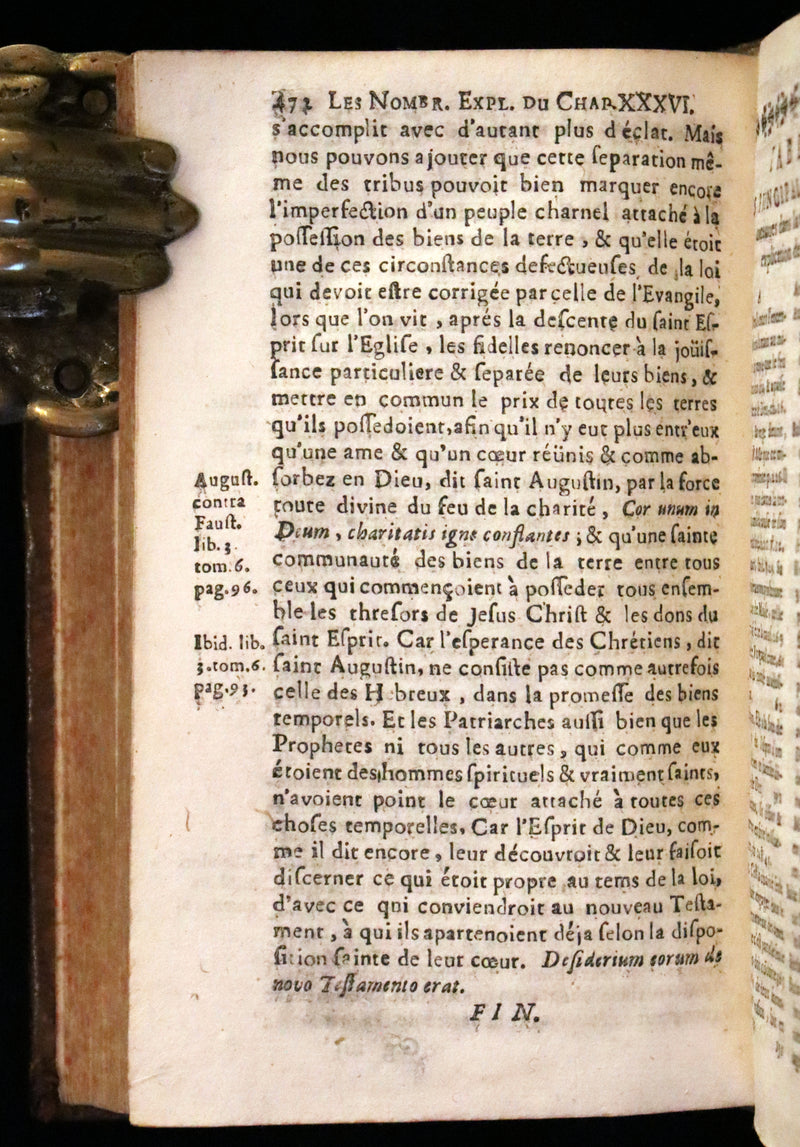 472 LES NOMBR. EXPL. DU CHAP. XXXVI.
s'accomplit avec d'autant plus d'éclat. Mais
nous pouvons ajouter que cette ſeparation mê-
me des tribus pouvoit bien marquer encore
l'imperfection d'un peuple charnel attaché à la
poſſeſſion des biens de la terre, & qu'elle étoit
une de ces circonſtances defectueuſes de la loi
qui devoit eſtre corrigée par celle de l'Evangile,
lors que l'on vit, aprés la deſcente du ſaint Eſ-
prit ſur l'Egliſe, les fidelles renoncer à la joüiſ-
ſance particuliere & ſeparée de leurs biens, &
mettre en commun le prix de toutes les terres
qu'ils poſſedoient, afin qu'il n'y eut plus entr'eux
qu'une ame & qu'un cœur réünis & comme ab-
ſorbez en Dieu, dit ſaint Auguſtin, par la force
toute divine du feu de la charité, Cor unum in
Deum, charitatis igne conflantes; & qu'une ſainte
communauté des biens de la terre entre tous
ceux qui commençoient à poſſeder tous enſem-
ble les threſors de Jeſus Chriſt & les dons du
ſaint Eſprit. Car l'eſperance des Chrétiens, dit
ſaint Auguſtin, ne conſiſte pas comme autrefois
celle des H breux, dans la promeſſe des biens
temporels. Et les Patriarches auſſi bien que les
Prophetes ni tous les autres, qui comme eux
étoient des hommes ſpirituels & vraiment ſaints,
n'avoient point le cœur attaché à toutes ces
choſes temporelles. Car l'Eſprit de Dieu, com-
me il dit encore, leur découvroit & leur faiſoit
diſcerner ce qui étoit propre au tems de la loi,
d'avec ce qui conviendroit au nouveau Teſta-
ment, à qui ils apartenoient déja ſelon la diſpo-
ſition ſainte de leur cœur. Deſiderium eorum de
novo Teſtamento erat.
FIN.
Auguſt.
contra
Fauſt.
lib. 5.
tom. 6.
pag. 96.
Ibid. lib.
5. tom. 6.
pag. 95.